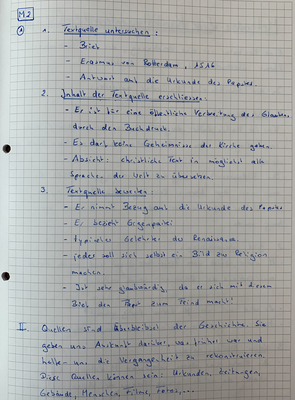 M2
① 1. Textquelle untersuchen:
- Brief
- Erasmus von Rotterdam, 1516
- Antwort auf die Urkunde des Papstes
2. Inhalt der Textquelle erschliessen:
- Er ist für eine öffentliche Verbreitung des Glaubens
durch den Buchdruck.
- Es darf keine Geheimnisse der Kirche geben.
- Absicht: christliche Text in möglichst alle
Sprachen der Welt zu übersetzen.
3. Textquelle bewerten:
- Er nimmt Bezug auf die Urkunde des Papstes
- Er bezieht Gegenpartei
- typischer Gelehrter der Renaissance.
- jeder soll sich selbst ein Bild zur Religion
machen.
- Ist sehr glaubwürdig, da er sich mit diesem
Brief den Papst zum Feind macht!
II. Quellen sind Überbleibsel der Geschichte. Sie
geben uns Auskunft darüber, was früher war und
helfen uns die Vergangenheit zu rekonstruieren
Diese Quellen können sein: Urkunden, Zeitungen,
Gebäude, Menschen, Filme, Fotos,...